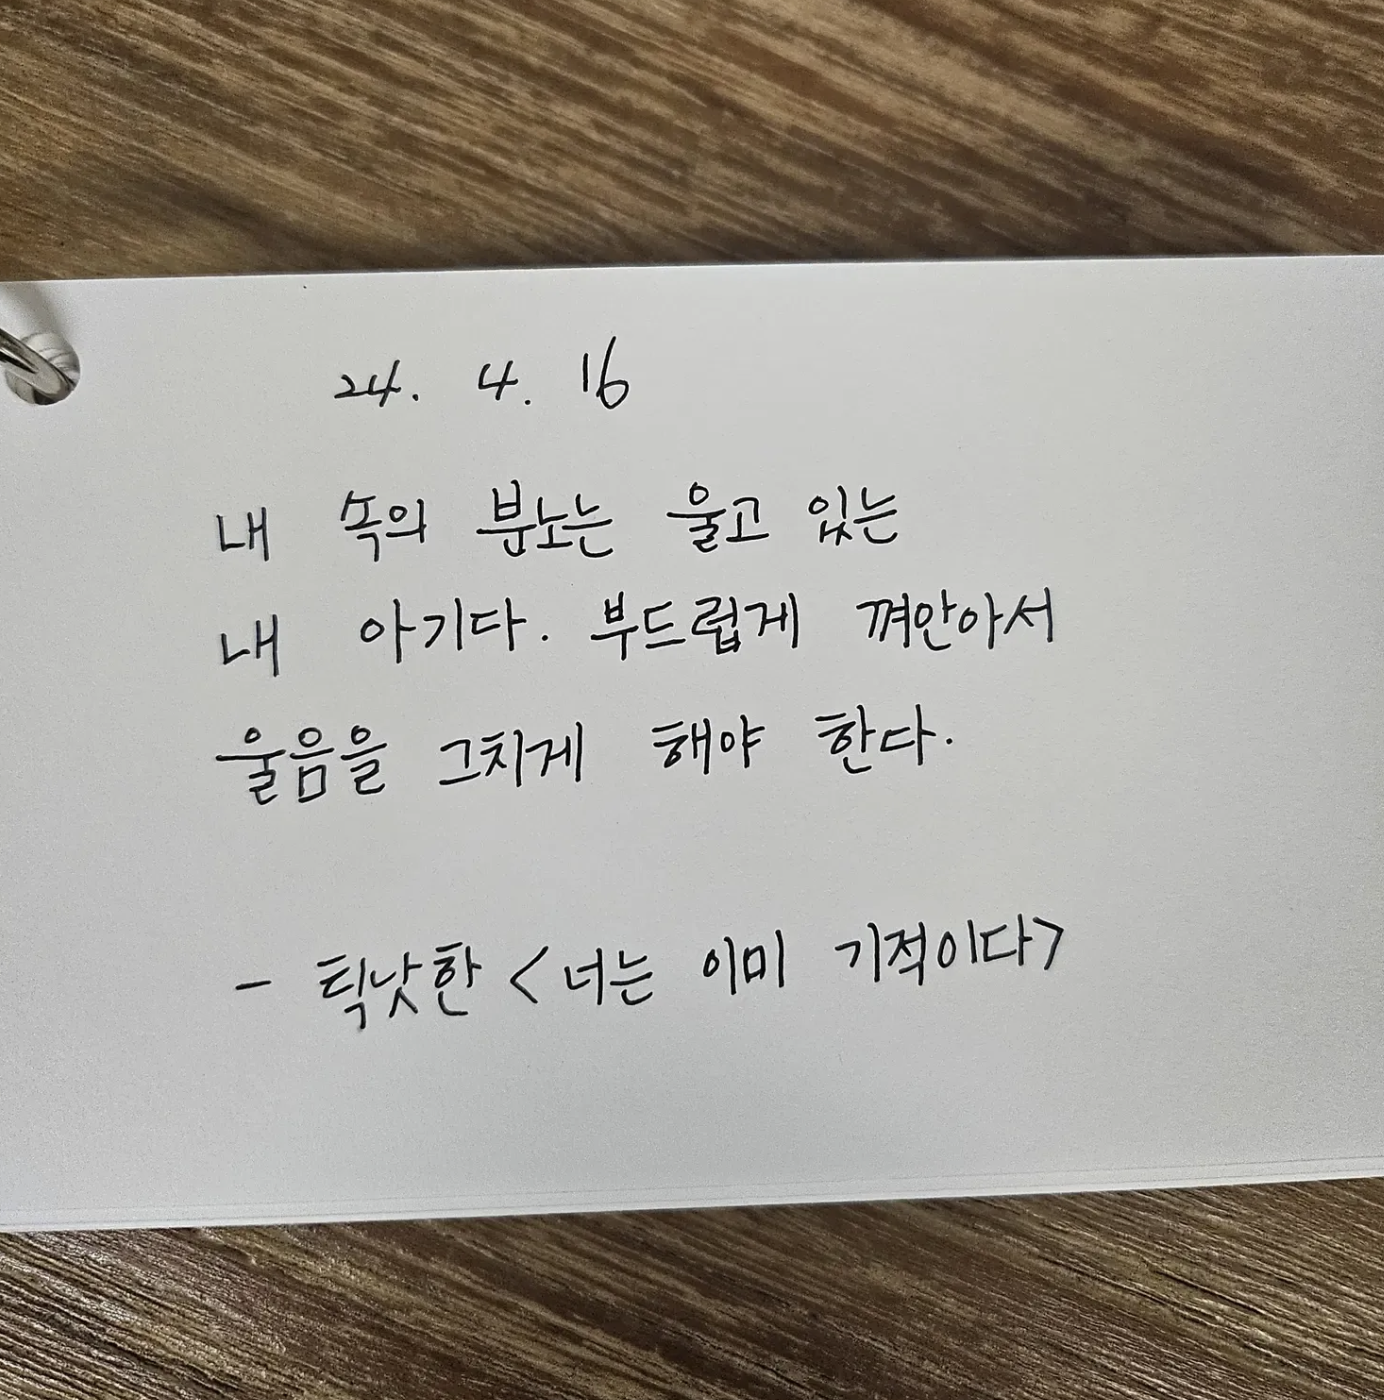 24. 4. 16
내 속의 분노는 울고 있는
내 아기다. 부드럽게 껴안아서
울음을 그치게 해야 한다.
- 틱낫한 <너는 이미 기적이다>